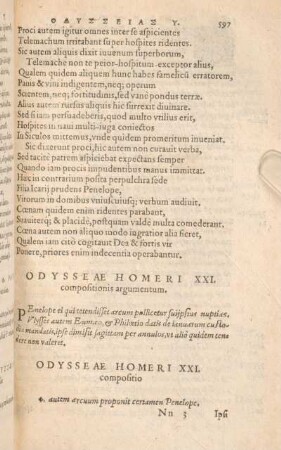 ΟΔΥΣΣΕΙΑΣ Υ. 597
Proci autem igitur omnes inter se aspicientes
Telemachum irritabant super hospites ridentes.
Sic autem aliquis dixit iuuenum superborum,
Telemache non te peior-hospitum-exceptor alius,
Qualem quidem aliquem hunc habes famelicū erratorem,
Panis & vini indigentem, neq; operum
Scientem, neq; fortitudinis, sed vanū pondus terræ.
Alius autem rursus aliquis hic surrexit diuinare.
Sed si iam persuadeberis, quod multo vtilius erit,
Hospites in naui multi-iuga coniectos
In Siculos mittemus, vnde quidem promeritum inueniat.
Sic dixerunt proci, hic autem non curauit verba,
Sed tacitè patrem aspiciebat expectans semper
Quando iam procis impudentibus manus immittat.
Hæc in contrarium posita perpulchra sede
Filia Icarij prudens Penelope,
Virorum in domibus vniuscuiusq; verbum audiuit.
Cœnam quidem enim ridentes parabant,
Suauiterq; & placidè, postquam valdè multa comederant.
Cœna autem non aliquo modo ingratior alia fieret,
Qualem iam citò cogitauit Dea & fortis vir
Ponere, priores enim indecentia operabantur.
ODYSSEAE HOMERI XXI.
compositionis argumentum.
PEnelope ei qui tetendisset arcum pollicetur suijpsius nuptias.
Vlysses autem Eumæo, & Philœtio datis de ianuarum custo-
dia mandatis, ipse dimisit sagittam per annulos, vt aliò quidem ten-
dere non valerët.
ODYSSEAE HOMERI XXI.
compositio
φ. autem arcuum proponit certamen Penelope.
Nn 3 Ipsi